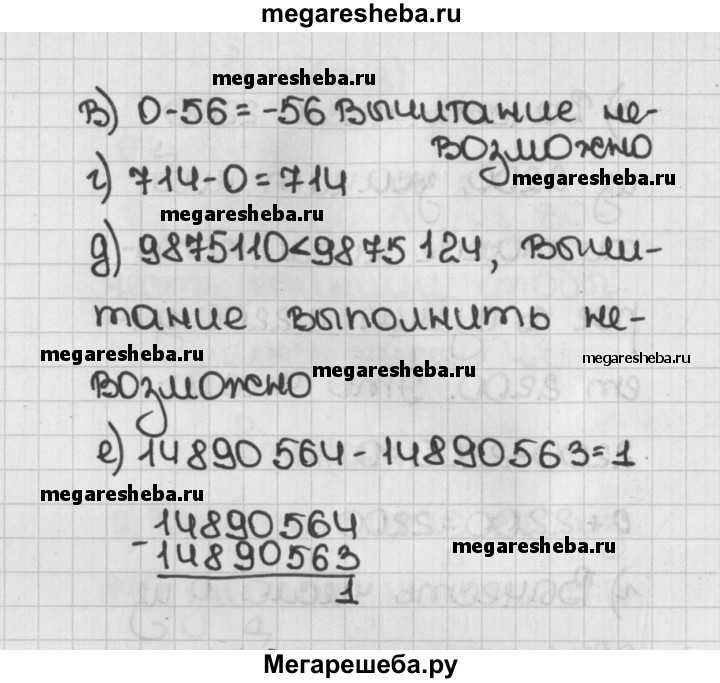 megaresheba.ru
megaresheba.ru
в) 0-56=-56 Вычитание не-
возможно
megaresheba.ru
г) 714-0=714
megaresheba.ru
д) 9875110<9875124, Вычи-
тание выполнить не-
megaresheba.ru
megaresheba.ru
возможно
megaresheba.ru
е) 14890564-14890563=1
megaresheba.ru
14890564
- 14890563
megaresheba.ru
1
Мегарешеба.ру